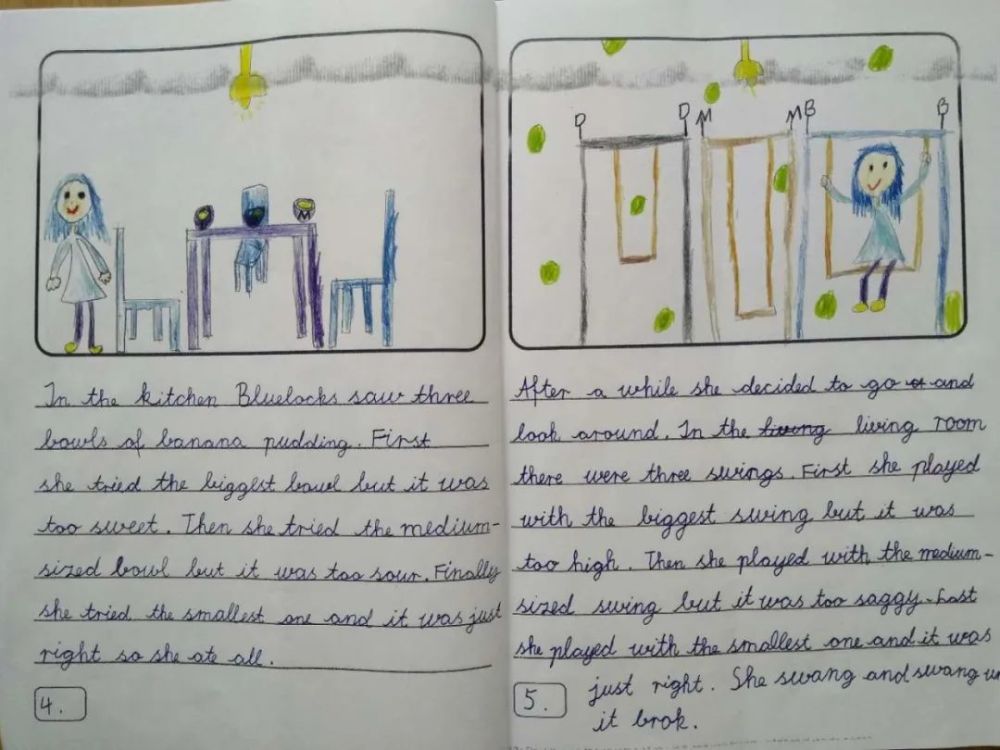 In the kitchen Bluelocks saw three
bowls of banana pudding. First
she tried the biggest bowl but it was
too sweet. Then she tried the medium-
sized bowl but it was too sour. Finally
she tried the smallest one and it was just
right so she ate all.
4.
D D M M B B
After a while she decided to go and
look around. In the living room
there were three swings. First she played
with the biggest swing but it was
too high. Then she played with the medium-
sized swing but it was too saggy. Last
she played with the smallest one and it was
just right. She swang and swang
it brok.
5.